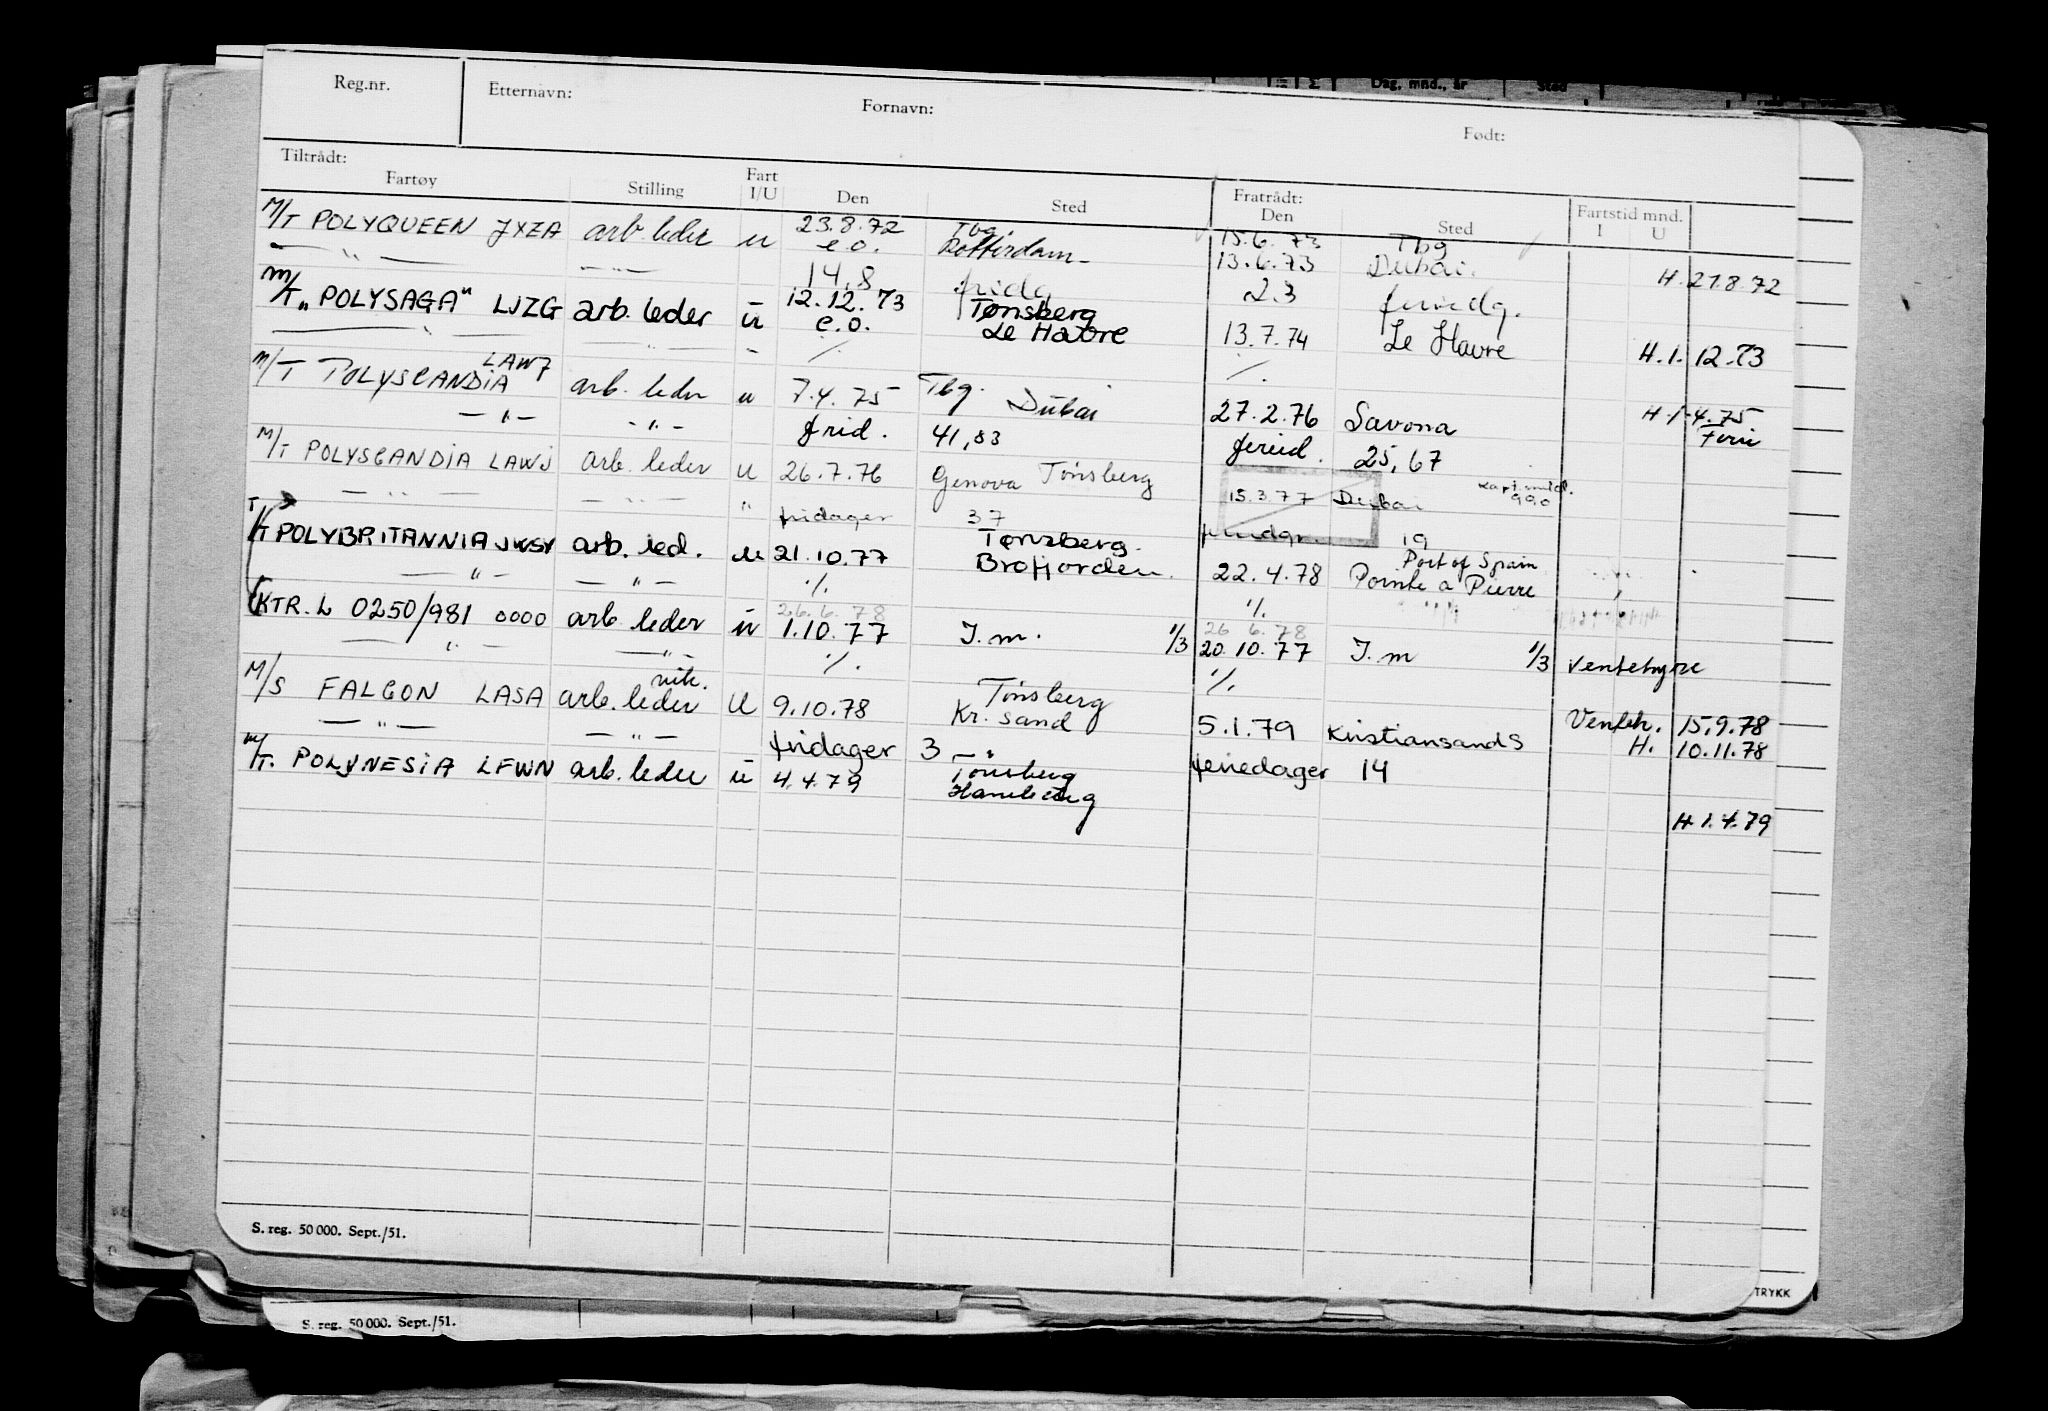 Dag, mnd., år Sted
Reg.nr. Etternavn: Fornavn: Født:
Tiltrådt: Fratrådt: Fartstid mnd.
Fartøy Stilling Fart I/U Den Sted Den Sted I U
M/T POLYQUEEN JXZA arb. leder u 23.8.72 Tbg. 15.6.73 Tbg
— " — — " — e.o. Rotterdam 13.6.73 Dubai. H. 27.8.72
14,8 fridg 2.3 feriedg.
M/T "POLYSAGA" LJZG arb. leder u 12.12.73 Tønsberg
— " — — " — e.o. Le Havre 13.7.74 Le Havre H. 1. 12.73
M/T POLYSCANDIA LAWJ arb. leder u 7.4.75 Tbg. Dubai ./.
— " — — " — frid. 41,83 27.2.76 Savona H. 1.4.75
feried. 25,67 Ferie
M/T POLYSCANDIA LAWJ arb. leder u 26.7.76 Genova Tønsberg
— " — — " — " fridager 37 15.3.77 Dubai
T/T POLYBRITANNIA JWSV arb. led. u 21.10.77 Tønsberg. 19
— " — — " — ./. Brofjorden. 22.4.78 Port of Spain Pointe a Pierre
26.6.78 ./. 26 6.78
KTR. L 0250/981 0000 arb leder u 1.10.77 I.m. 1/3 20.10.77 I.m 1/3 Ventehyre
— " — — " — ./. ./.
M/S FALCON LASA arb. leder vik. U 9.10.78 Tønsberg Kr. sand Venteh. 15.9.78
— " — — " — fridager 3 — " 5.1.79 Kristiansand S H. 10.11.78
M/T. POLYNESIA LFWN arb. leder u 4.4.79 Tønsberg Hamburg feriedager 14
H. 1.4.79
S. reg. 50 000. Sept./51.
TRYKK
S. reg. 50 000. Sept./51.